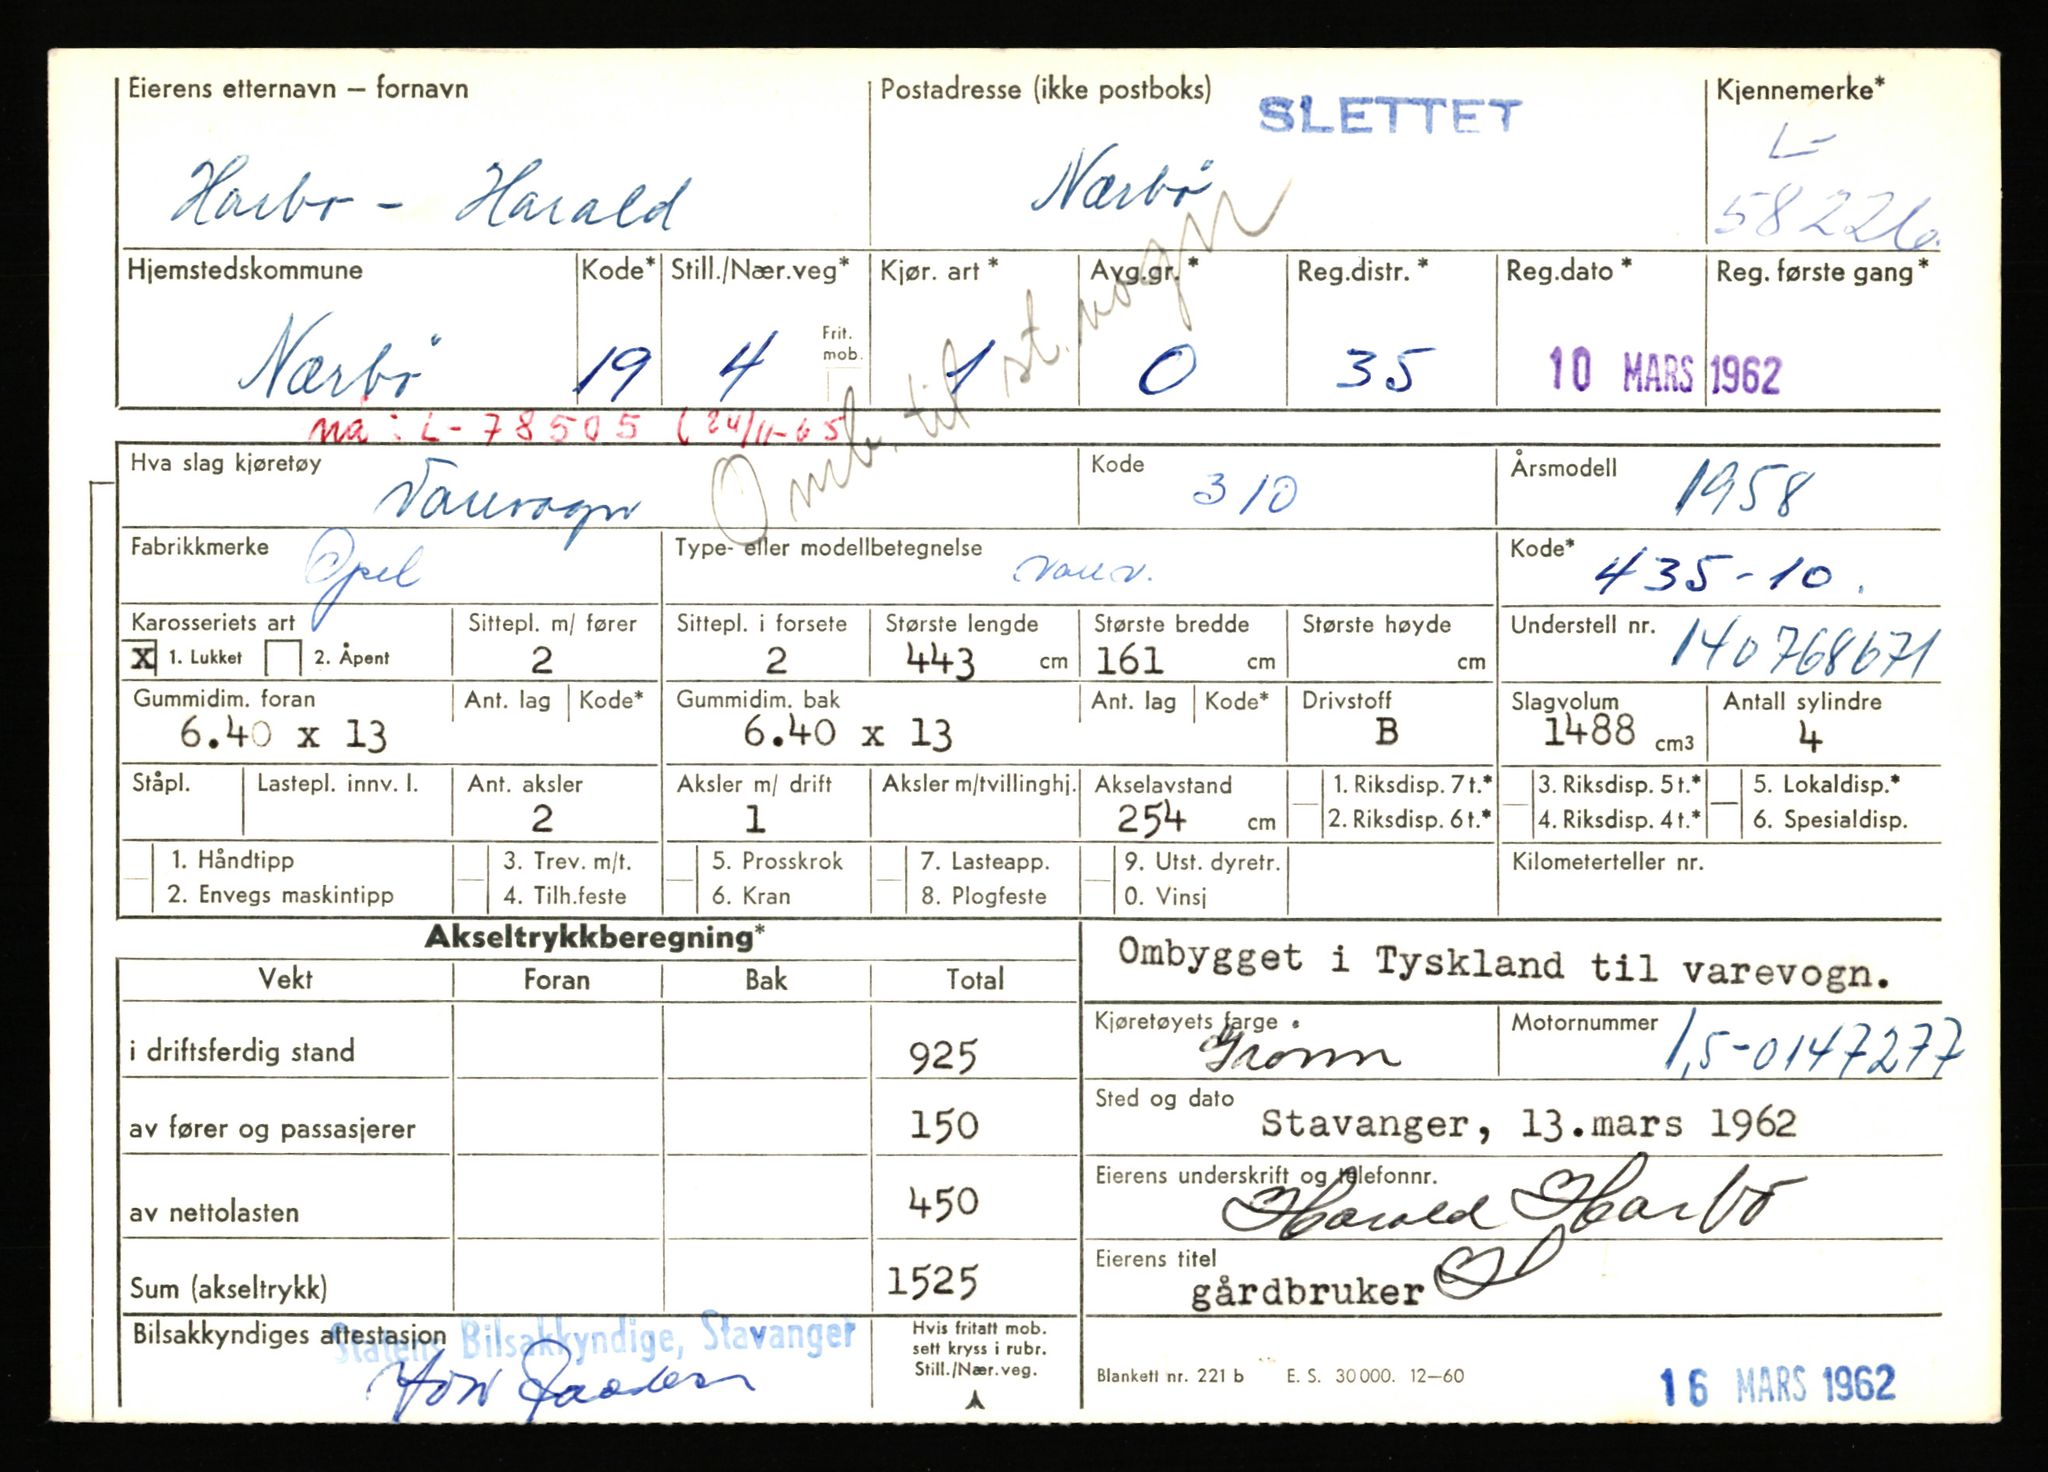 Eierens etternavn – fornavn Postadresse (ikke postboks) SLETTET Kjennemerke*
L-
Harbo - Harald Nærbö 58226.
Hjemstedskommune Kode* Still./Nær.veg* Kjør. art * Avg.gr. * Reg.distr. * Reg.dato * Reg. første gang*
Frit. mob.
Nærbö 19 4 1 0 35 10 MARS 1962
Omb. til st.vogn
nå: L-78505 (24/11-65
Hva slag kjøretøy Kode Årsmodell
Varevogn 310 1958
Fabrikkmerke Type- eller modellbetegnelse Kode*
Opel varev. 435-10.
Karosseriets art Sittepl. m/ fører Sittepl. i forsete Største lengde Største bredde Største høyde Understell nr.
X 1. Lukket 2. Åpent 2 2 443 cm 161 cm cm 140768671
Gummidim. foran Ant. lag Kode* Gummidim. bak Ant. lag Kode* Drivstoff Slagvolum Antall sylindre
6.40 x 13 6.40 x 13 B 1488 cm3 4
Ståpl. Lastepl. innv. l. Ant. aksler Aksler m/ drift Aksler m/tvillinghj. Akselavstand 1. Riksdisp. 7 t.* 3. Riksdisp. 5 t.* 5. Lokaldisp.*
2 1 254 cm 2. Riksdisp. 6 t.* 4. Riksdisp. 4 t.* 6. Spesialdisp.
1. Håndtipp 3. Trev. m/t. 5. Prosskrok 7. Lasteapp. 9. Utst. dyretr. Kilometerteller nr.
2. Envegs maskintipp 4. Tilh.feste 6. Kran 8. Plogfeste 0. Vinsj
Akseltrykkberegning*
Ombygget i Tyskland til varevogn.
Vekt Foran Bak Total
Kjøretøyets farge Motornummer
Grönn 1,5-0147277
i driftsferdig stand 925
Sted og dato
Stavanger, 13.mars 1962
av fører og passasjerer 150
Eierens underskrift og telefonnr.
Harald Harbö
av nettolasten 450
Eierens titel
gårdbruker
Sum (akseltrykk) 1525
Bilsakkyndiges attestasjon
Statens Bilsakkyndige, Stavanger
Hvis fritatt mob.
sett kryss i rubr.
Still./Nær.veg.
Blankett nr. 221 b E. S. 30 000. 12–60
16 MARS 1962